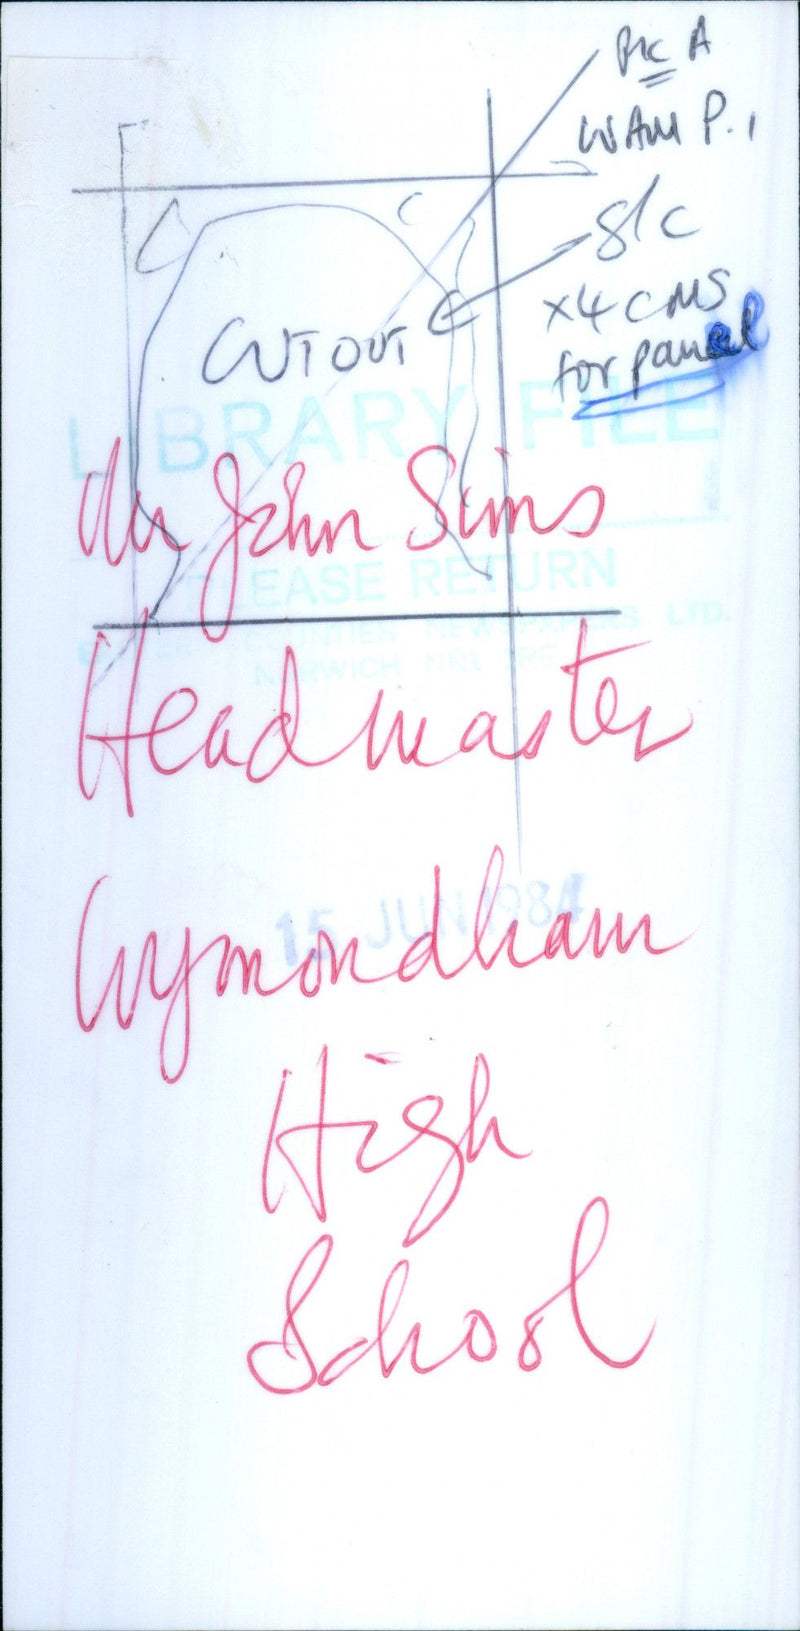 Pic A
WAM P.1
S/C
x4 CMS
for panel
CUTOUT
LIBRARY FILE
Mr John Sims
PLEASE RETURN
COUNTIES NEWSPAPERS LTD.
NORWICH NR1
Headmaster
15 JUN 1984
Wymondham
High
School